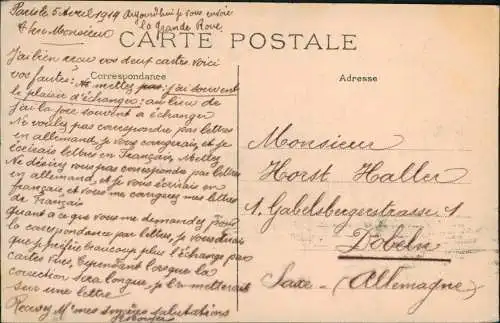 Paris le 5 Avril 1914 aujourd'hui je vous envoie
la Grande Roue
Cher Monsieur
CARTE POSTALE
J'ai bien reçu vos deux cartes voici
Correspondance
vos fautes: Ne mettez pas: j'ai souvent
le plaisir d'échanger; au lieu de
j'ai la joie souvent à échanger
Ne voulez pas correspondre par lettres
en allemand, je vous
écrirais lettres en Français. Mettez
Ne désirez vous pas correspondre par lettres
en allemand, et je vous écrirais en
français, et vous me corrigerez mes lettres
de Français
Quant a ce que vous me demandez pour
la correspondance par lettre, je vous dirais
que je préfère beaucoup plus l'échange par
cartes vues. Cependant lorsque la
correction sera longue, je la mettrai
sur une lettre.
Recevez Mr mes sincères salutations
Adresse
Monsieur
Horst Haller
1. Gabelsbergerstrasse 1
Döbeln
Saxe - (Allemagne)